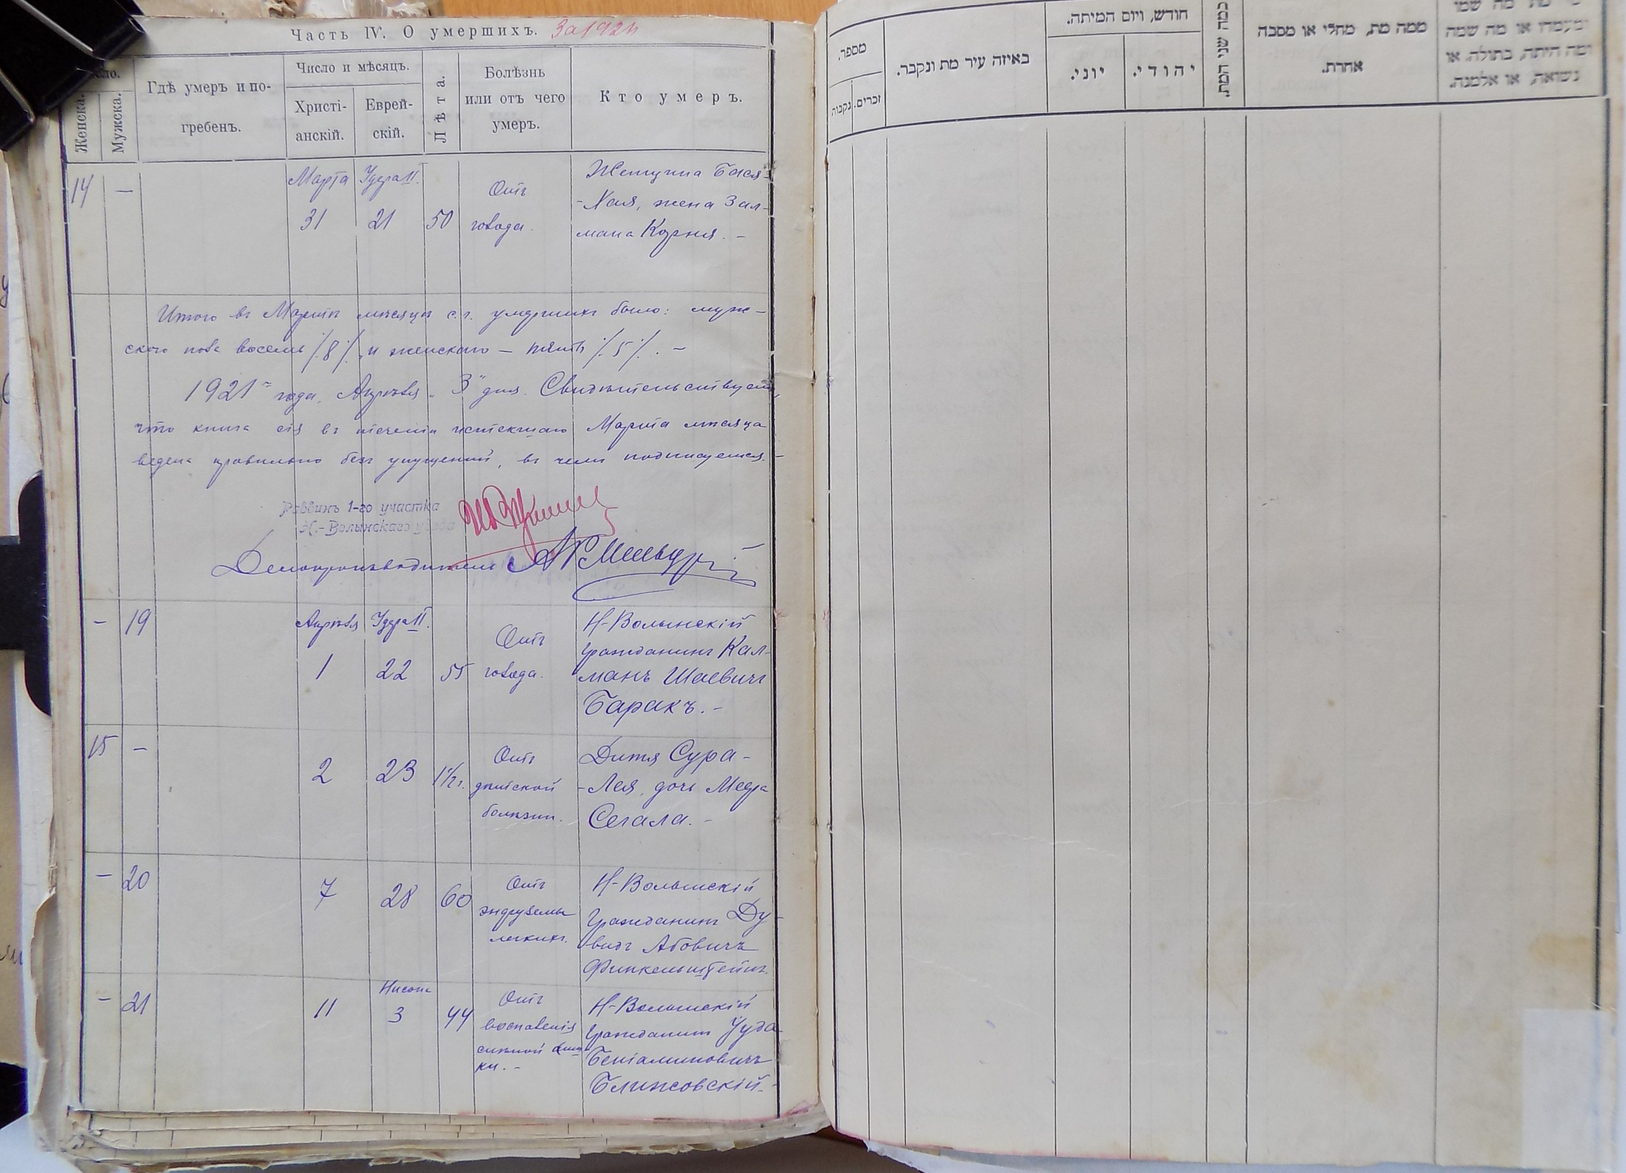 Часть IV. О умершихъ. За 1921
Женска.
Мужска.
Гдѣ умеръ и по-
гребенъ.
Число и мѣсяцъ.
Христі-
анскій.
Еврей-
скій.
Лѣта.
Болѣзнь
или отъ чего
умеръ.
Кто умеръ.
14 — Марта 31 Удура II. 21 50
Отъ
голода.
Женщина Бася-
-Хая, жена Зал-
мана Корня. –
Итого въ Мартѣ мѣсяцѣ с.г. умершихъ было: муж-
ского пола восемь /8/. и женскаго – пять /5/. –
1921 года, Апрѣля 3 дня. Свидѣтельствуемъ,
что книга сія въ теченіи истекшаго Марта мѣсяца
ведена правильно безъ упущеній, въ чемъ подписуемся. –
Раввинъ 1-го участка
Н.-Волынскаго уѣзда
Дѣлопроизводитель
– 19 Апрѣля 1 Удура II. 22 55
Отъ
голода.
Н-Волынскій
гражданинъ Кал-
манъ Шаевичъ
Баракъ. –
15 – 2 23 1½ г.
Отъ
дѣтской
болѣзни.
Дитя Сура-
-Лея, дочь Меера
Сегала. –
– 20 7 28 60
Отъ
эмфуземы
легкихъ.
Н-Волынскій
гражданинъ Ду-
видъ Абовичъ
Финкельштейнъ
– 21 11 Нисона 3 44
Отъ
воспаленія
слѣпой киш-
ки. –
Н-Волынскій
гражданинъ Ууда
Беніаминовичъ
Ближовскій. –
מספר.
זכרים.
נקבות
באיזה עיר מת ונקבר.
חודש, ויום המיתה.
יהודי.
יוני.
ממה מת, מחלי או מסבה
אחרת.
ומה היתה, בתולה, או
נשואה, או אלמנה.